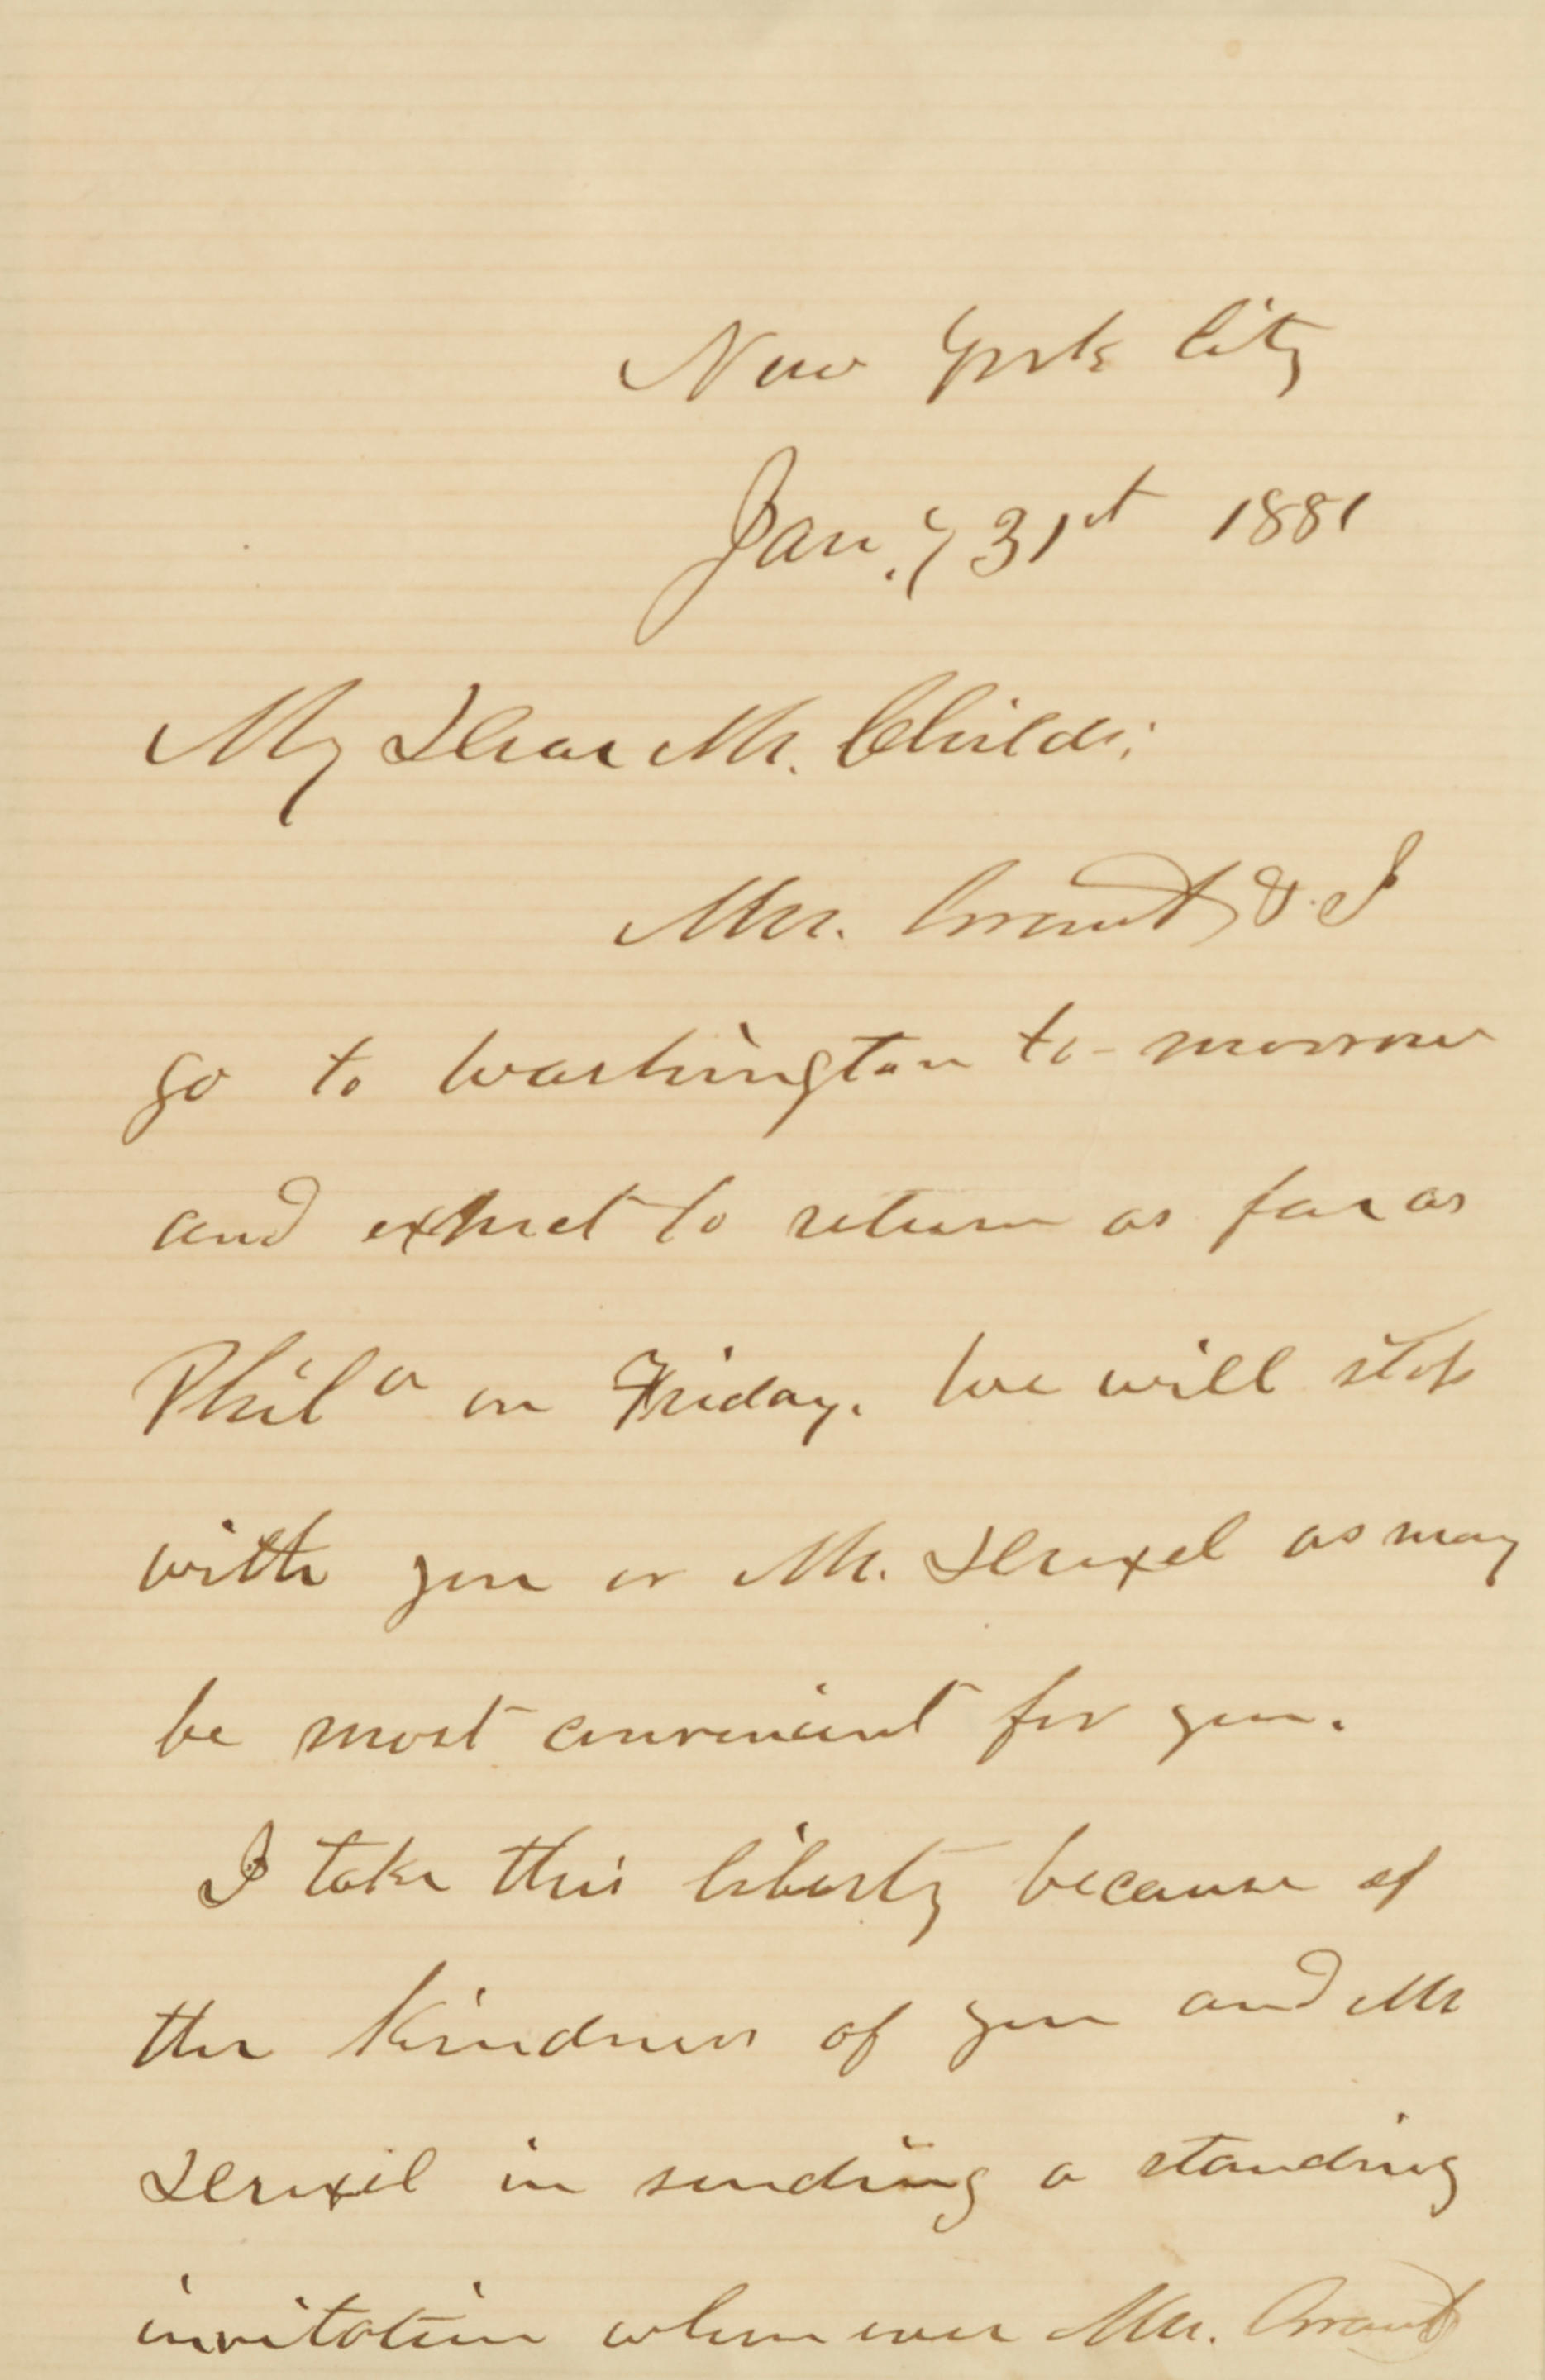 New York City
Jan.y 31st 1881
My Dear Mr. Childs;
Mrs. Grant & I
go to Washington to-morrow
and expect to return as far as
Phila on Friday. We will stop
with you or Mr. Drexel as may
be most convenient for you.
I take this liberty because of
the kindness of you and Mr
Drexel in sending a standing
invitation whenever Mrs. Grant